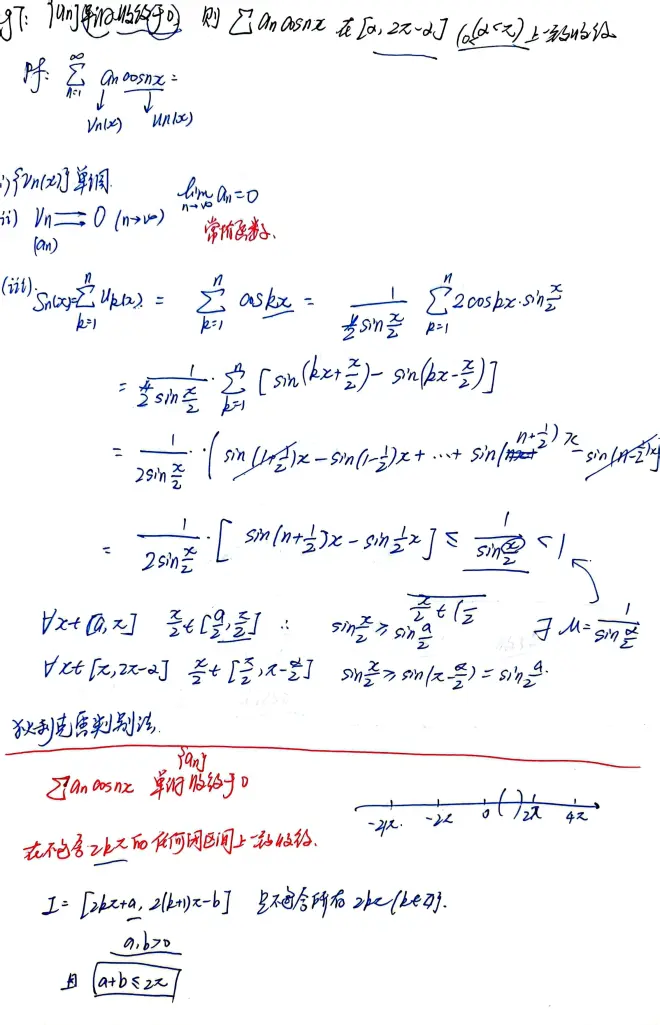 eg7: {an}单调收敛于0, 则 ∑ an cosnx 在 [α, 2π-α] (0<α<π) 上一致收敛
Pf: ∑_{n=1}^{∞} an cosnx =
Vn(x) Un(x)
i) {Vn(x)} 单调.
ii) Vn ⇉ 0 (n→∞) lim_{n→∞} an = 0
(an) 常值函数.
(iii). Sn(x)=∑_{k=1}^{n} Uk(x) = ∑_{k=1}^{n} coskx = 1/(2sin x/2) ∑_{k=1}^{n} 2coskx·sin x/2
= 1/(2sin x/2) · ∑_{k=1}^{n} [sin(kx+x/2) - sin(kx-x/2)]
= 1/(2sin x/2) · (sin(1+1/2)x - sin(1-1/2)x + ⋯ + sin(n+1/2)x - sin(n-1/2)x]
= 1/(2sin x/2) · [sin(n+1/2)x - sin 1/2 x] ≤ 1/(sin x/2) < 1
x/2 ∈ (π/2
∀x∈[a, π] x/2 ∈ [a/2, π/2] ∴ sin x/2 ≥ sin a/2 ∃ M = 1/(sin α/2)
∀x∈[π, 2π-α] x/2 ∈ [π/2, π-α/2] sin x/2 ≥ sin(π-α/2) = sin a/2.
狄利克雷判别法.
{an}
∑ an cosnx 单调收敛于0
-4π -2π 0 ( ) 2π 4π
在不包含2kπ的任何闭区间上一致收敛.
I = [2kπ+a, 2(k+1)π-b] 是不包含所有 2kπ (k∈Z).
a,b>0
且 a+b≤2π